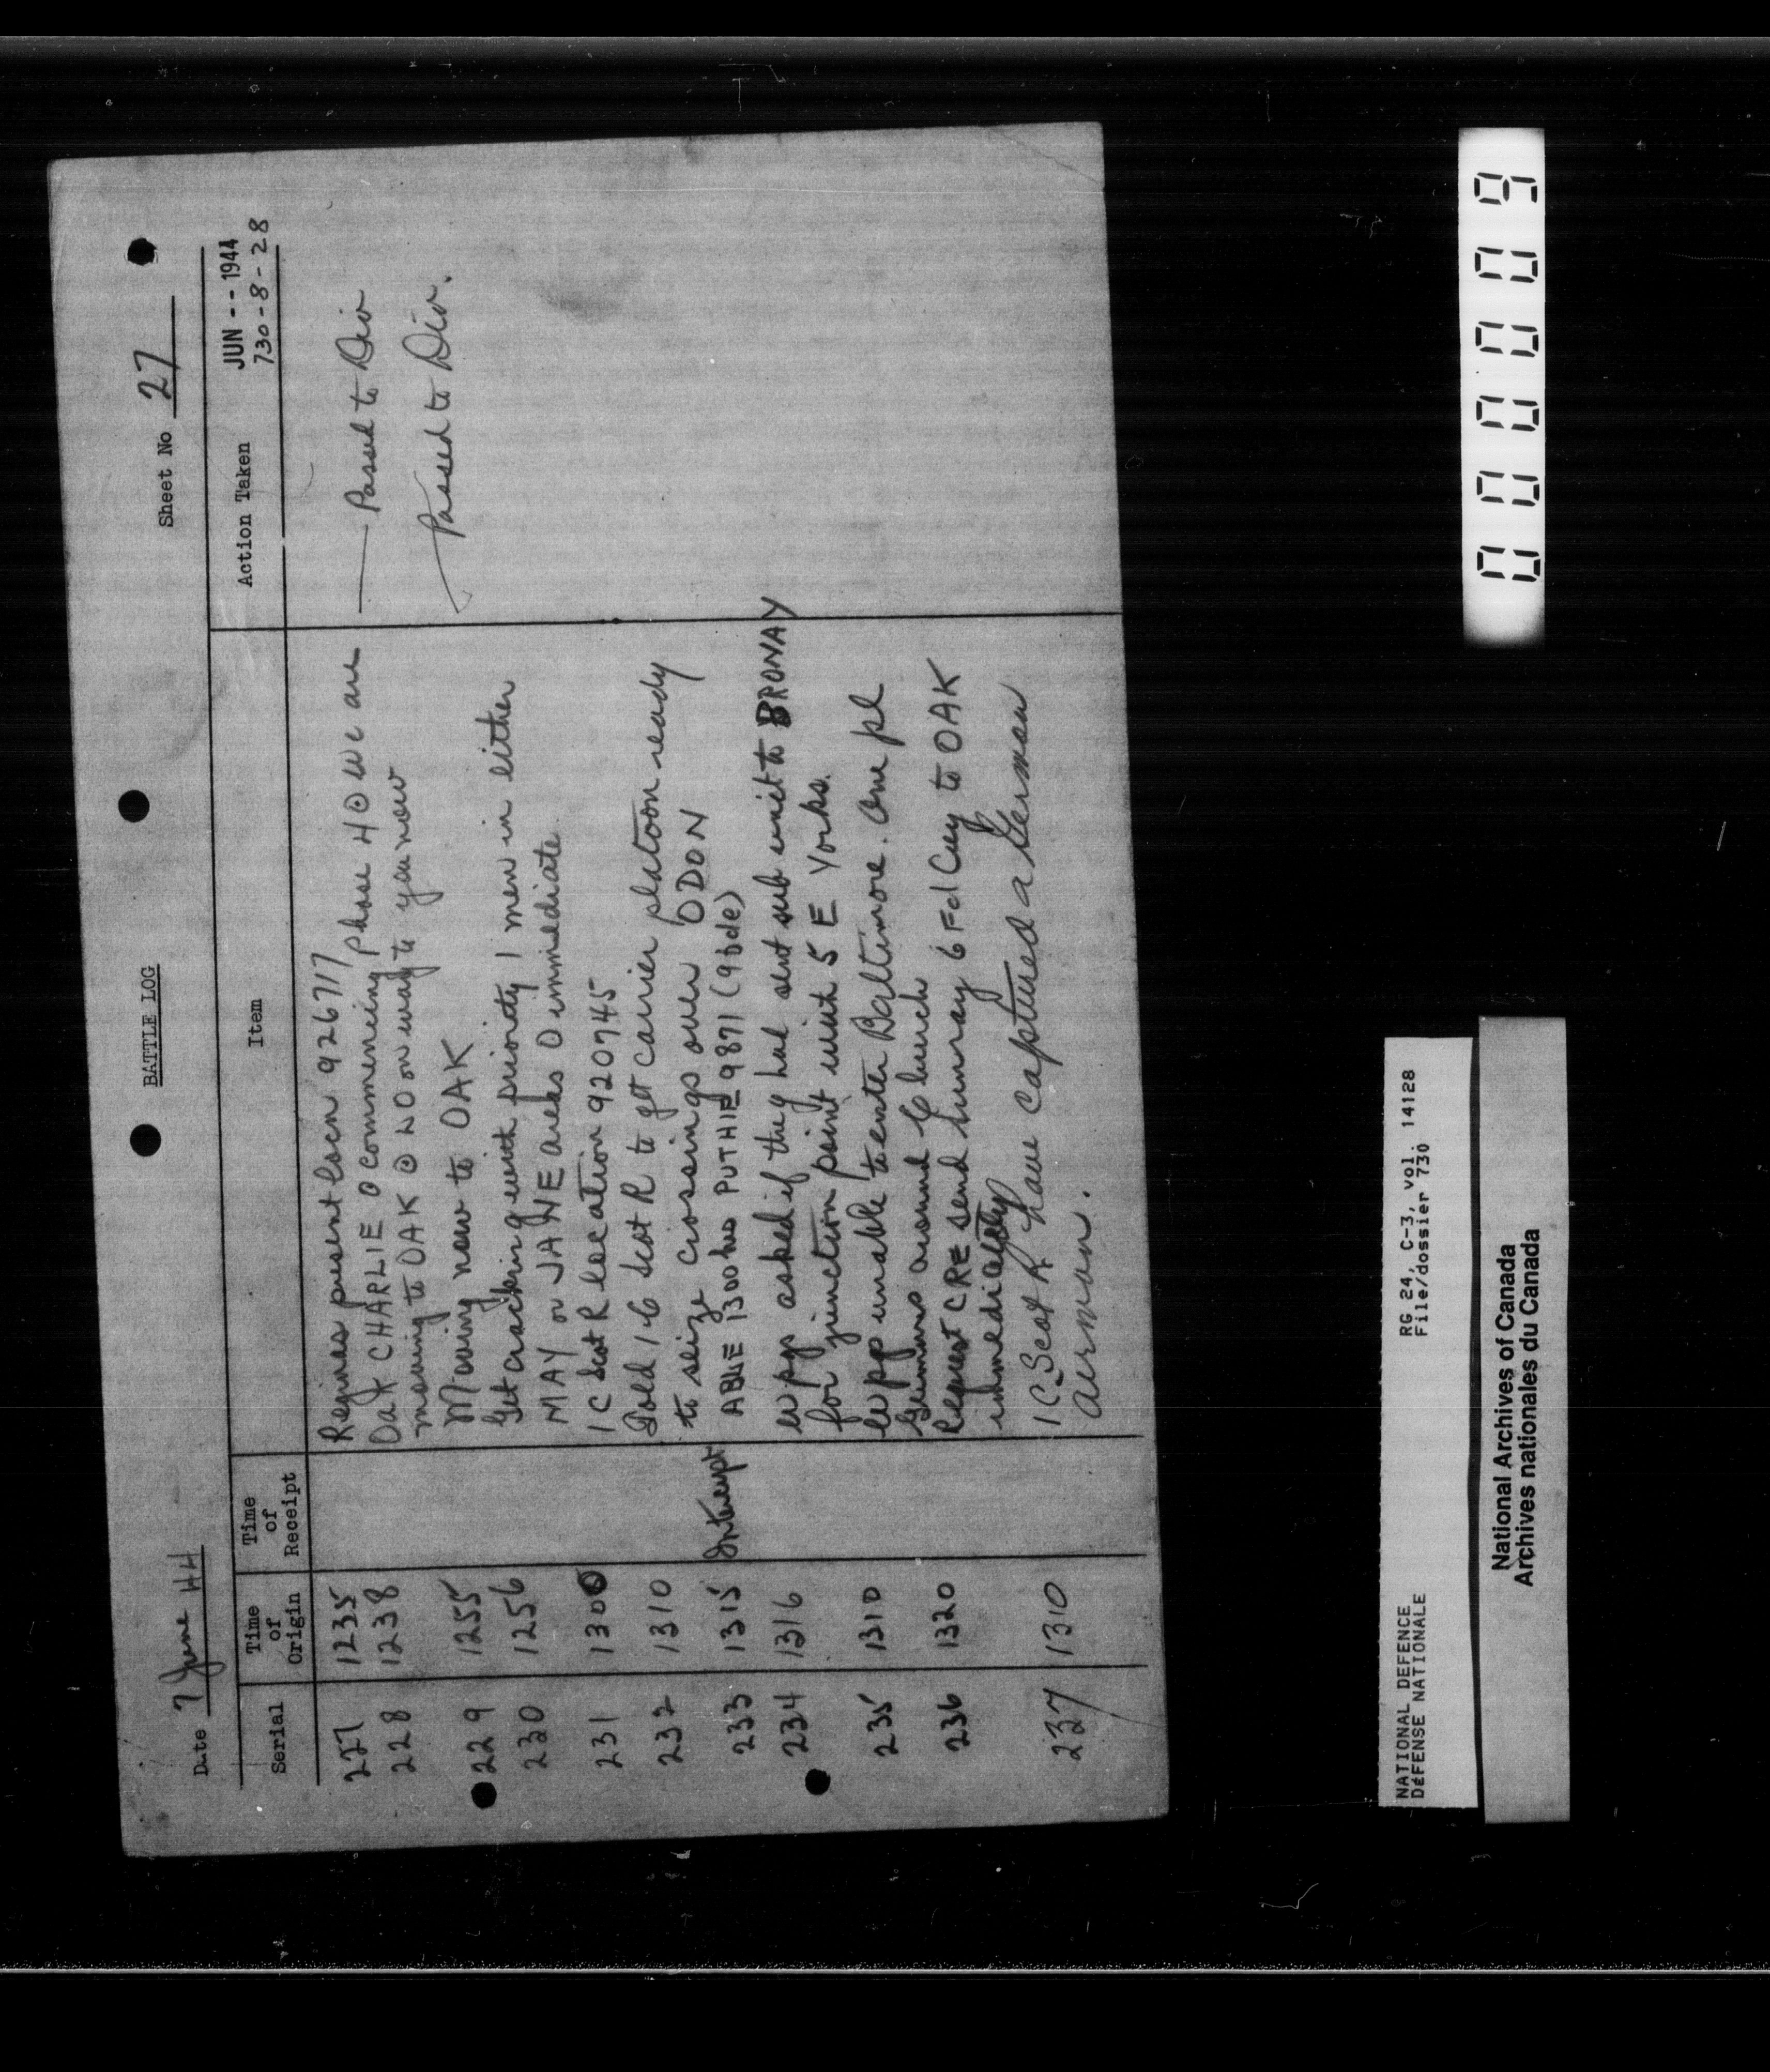 BATTLE LOG
Date 7 June 44
Sheet No 27
Serial Time of Origin Time of Receipt Item Action Taken JUN -- 1944
730-8-28
227 1235 Reginas present locn 926717
228 1238 OAK CHARLIE O commencing phase HOW we are — Passed to Div
moving to OAK @ NO on way to you now
229 1255 Moving now to OAK Passed to Div.
230 1256 Get cracking with priority 1 men in either
MAY or JANE areas O immediate
231 1300 1 C Scot R location 920745
232 1310 Told 1 C Scot R to get carrier platoon ready
to seize crossings over ODON
233 1315 Intercept ABLE 1300 hrs PUTHIE 9871 (9 bde)
234 1316 wpgs asked if they had sent sub unit to BRONAY
for junction point with 5 E Yorks.
235 1310 wpgs unable to enter Baltimore. One pl
Germans around Church
236 1320 Request CRE send hurray 6 Fd Coy to OAK
immediately
237 1310 1 C Scot R have captured a German
airman.
NATIONAL DEFENCE RG 24, C-3, vol. 14128
DÉFENSE NATIONALE File/dossier 730
National Archives of Canada
Archives nationales du Canada
000009